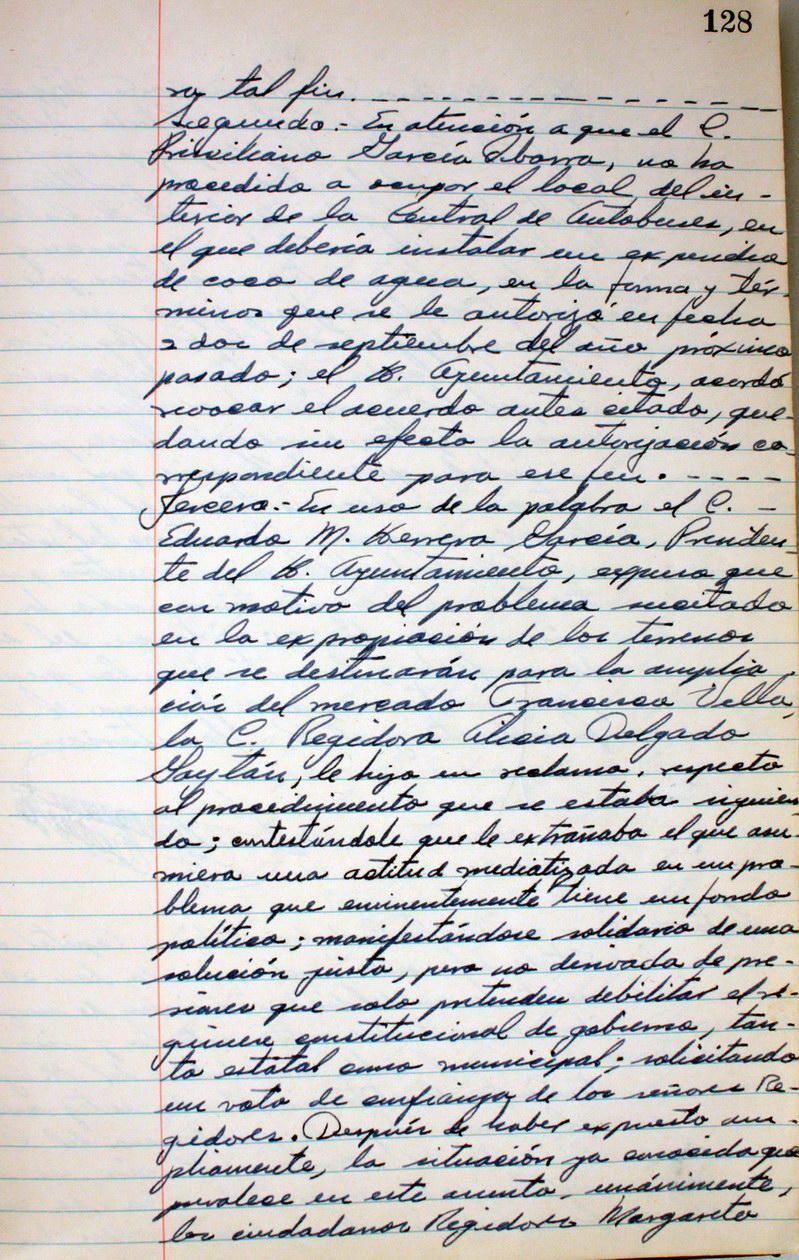 128
ra tal fin. - - - - - - - - - - - - - -
Segundo.- En atención a que el C.
Prisciliano García Ibarra, no ha
procedido a ocupar el local del in-
terior de la Central de Autobuses, en
el que debería instalar un expendio
de coco de agua, en la forma y tér-
minos que se le autorizó en fecha
2 dos de septiembre del año próximo
pasado; el H. Ayuntamiento, acordó
revocar el acuerdo antes citado, que-
dando sin efecto la autorización co-
rrespondiente para ese fin. - - - -
Tercero.- En uso de la palabra el C. -
Eduardo M. Herrera García, Presiden-
te del H. Ayuntamiento, expuso que
con motivo del problema suscitado
en la expropiación de los terrenos
que se destinarán para la amplia-
ción del mercado Francisco Villa,
la C. Regidora Alicia Delgado
Gaytán, le hizo un reclamo, respecto
al procedimiento que se estaba siguien-
do; contestándole que le extrañaba el que asu-
miera una actitud mediatizada en un pro-
blema que eminentemente tiene un fondo
político; manifestándose solidario de una
solución justa, pero no derivada de pre-
siones que solo pretenden debilitar el ré-
gimen constitucional de gobierno, tan-
to estatal como municipal; solicitando
un voto de confianza de los señores Re-
gidores. Después de haber expuesto am-
pliamente, la situación ya conocida que
prevalece en este asunto, unánimente,
los ciudadanos Regidores Margarito